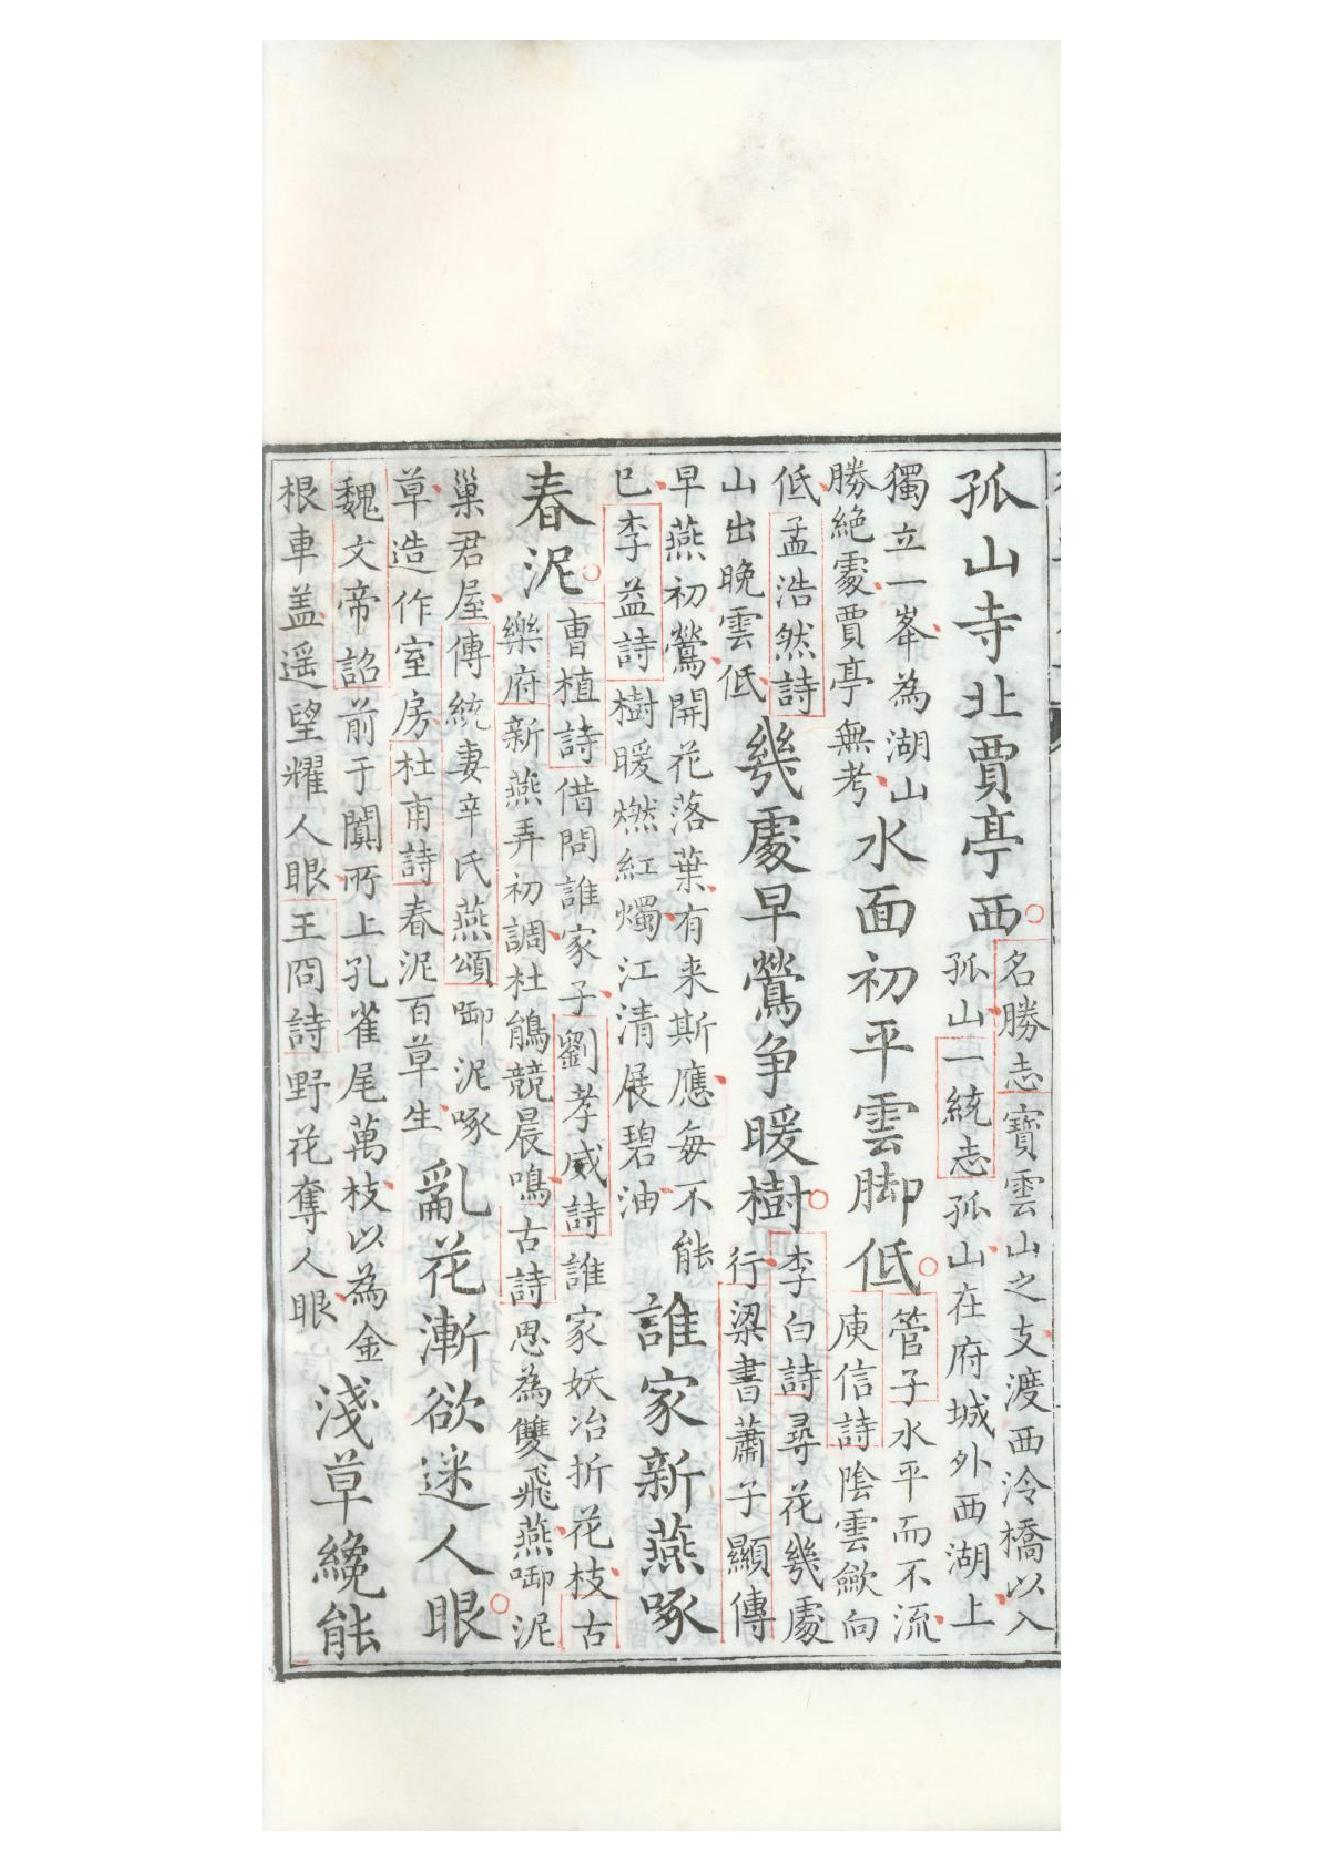 孤山寺北賈亭西
名勝志寶雲山之支渡西泠橋以入
孤山一統志孤山在府城外西湖上
獨立一峯為湖山
勝絶處賈亭無考
水面初平雲脚低
管子水平而不流
庾信詩陰雲歛向
低孟浩然詩
山出晚雲低
幾處早鶯争暖樹
李白詩尋花幾處
行梁書蕭子顯傳
早燕初鶯開花落葉有来斯應每不能
已李益詩樹暖燃紅燭江清展碧油
誰家新燕啄
春泥
曹植詩借問誰家子劉孝威詩誰家妖冶折花枝古
樂府新燕弄初調杜鵑競晨鳴古詩思為雙飛燕啣泥
巢君屋傳統妻辛氏燕頌啣泥啄
草造作室房杜甫詩春泥百草生
亂花漸欲迷人眼
魏文帝詔前于闐所上孔雀尾萬枝以為金
根車盖遥望耀人眼王冏詩野花奪人眼
淺草纔能